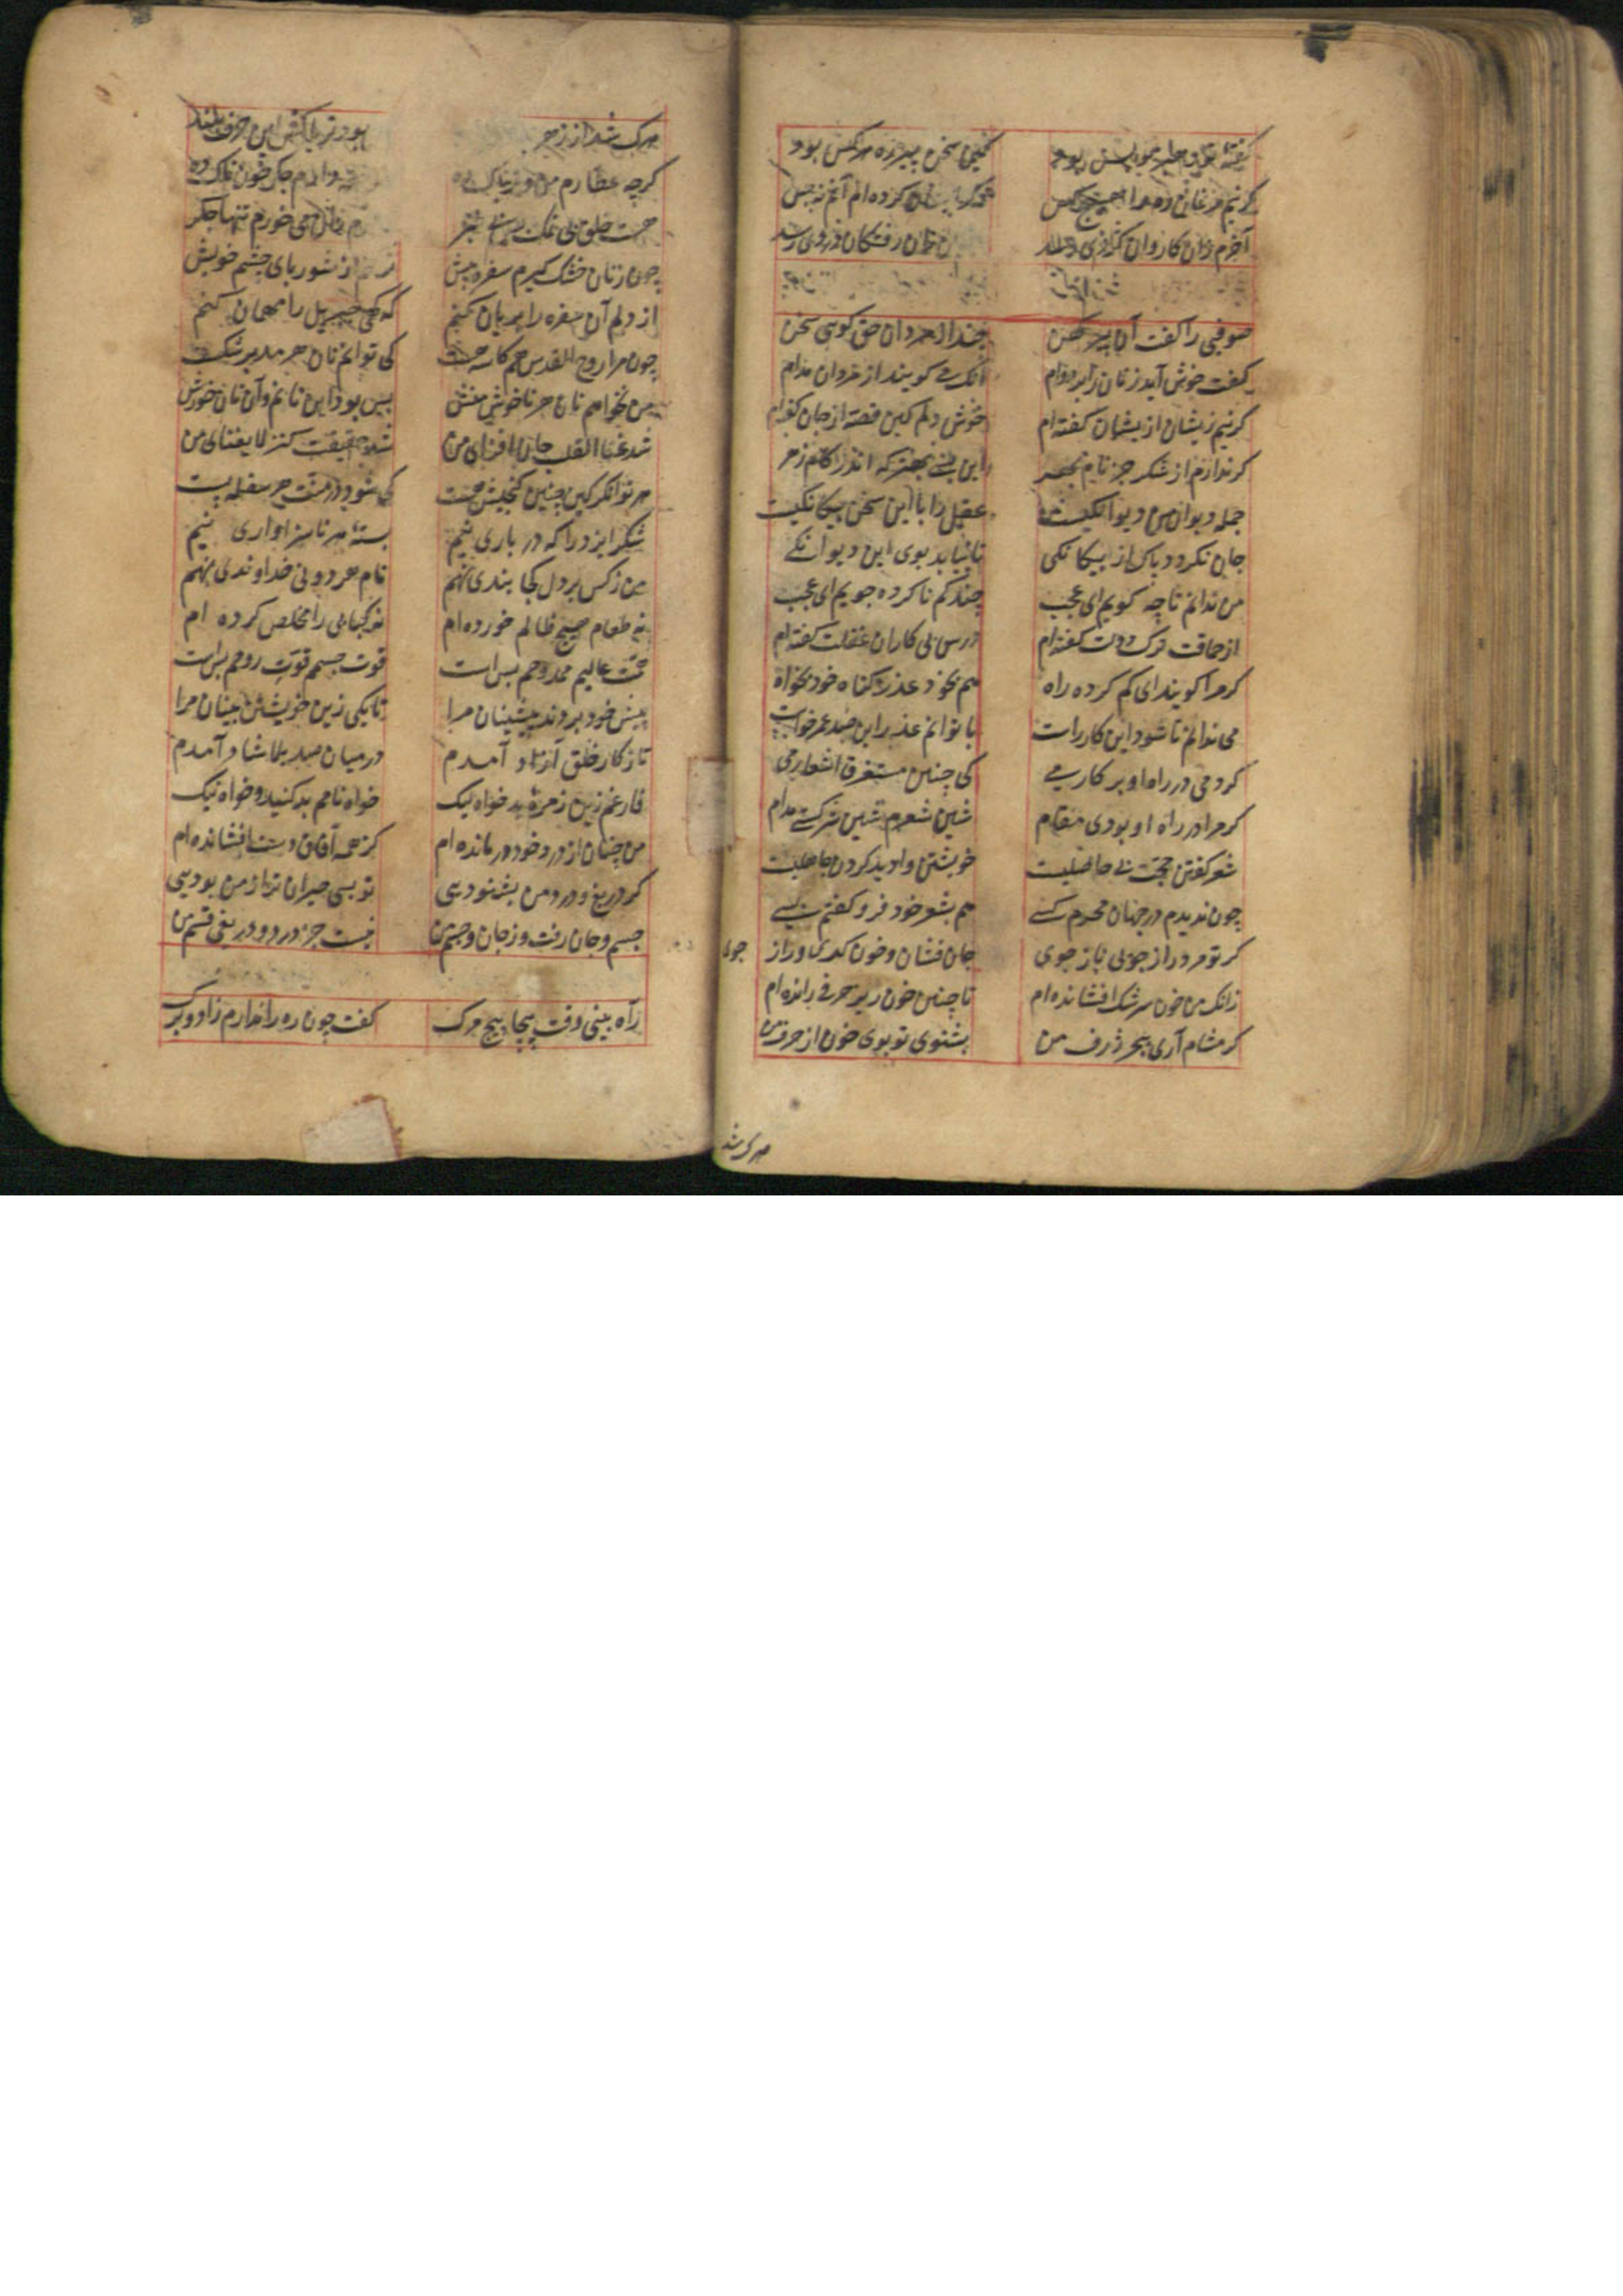 گرنیم مرغان ره را هیچ کس
آخرم زان کاروان گردی رسد
صوفیی را گفت آن پیر کهن چند از مردان حق گویی سخن
گفت خوش آید زنان را بر دوام آنک می گویند از مردان مدام
گرنیم زیشان ازیشان گفته ام خوش دلم کین قصه از جان گفته ام
گر ندارم از شکر جز نام بهر این بسی بهتر که اندر کام زهر
جمله دیوان من دیوانگیست عقل را با این سخن بیگانگیست
جان نگردد پاک از بیگانگی تا نیابد بوی این دیوانگی
من ندانم تا چه گویم ای عجب چند گم ناکرده جویم ای عجب
از حماقت ترک دولت گفته ام درس بی کاران غفلت گفته ام
گر مرا گویند ای گم کرده راه هم بخود عذر گناه خود بخواه
می ندانم تا شود این کار راست یا توانم عذر این صد عمر خواست
گر دمی در راه او بر کارمی کی چنین مستغرق اشعارمی
گر مرا در راه او بودی مقام شین شعرم شین شرکستی مدام
شعر گفتن حجت بی حاصلیست خویشتن را دید کردن جاهلیست
چون ندیدم در جهان محرم کسی هم بشعر خود فرو گفتم بسی
گر تو مرد راز جویی باز جوی جان فشان و خون گری و راز جوی
زانک من خون سرشک افشانده ام تا چنین خون ریز حرفی رانده ام
گر مشام آری ببحر ژرف من بشنوی تو بوی خون از حرف من
هرکه شد
هرک شد از زهر بود تریاکش این حرف بلند
گرچه عطارم من و تریاک ده
هست خلقی بی نمک می خورم تنها جگر
چون ز نان خشک گیرم سفره پیش تر کنم از شوربای چشم خویش
از دلم آن سفره را بریان کنم گه گهی جبریل را مهمان کنم
چون مرا روح القدس هم کاسه است کی توانم نان هر مدبر شکست
من نخواهم نان هر ناخوش منش بس بود این نانم و آن نان خورش
شد غناء القلب جان افزای من شد حقیقت کنز لا یفنای من
هر توانگر کین چنین گنجیش هست کی شود در منت هر سفله پست
شکر ایزد را که درباری نیم بسته هر ناسزاواری نیم
من ز کس بر دل کجا بندی نهم نام هر دونی خداوندی نهم
نه طعام هیچ ظالم خورده ام نه کتابی را مخلص کرده ام
همت عالیم ممدوحم بس است قوت جسم قوت روحم بس است
پیش خود بردند پیشینان مرا تا بکی زین خویشتن بینان مرا
تا ز کار خلق آزاد آمدم در میان صد بلا شاد آمدم
فارغم زین زمره بدخواه نیک خواه نامم بد کنید و خواه نیک
من چنان از درد خود درمانده ام کز همه آفاق دست افشانده ام
گر دریغ و درد من بشنودیی تو بسی حیران تر از من بودیی
جسم و جان رفت و ز جان و جسم من نیست جز درد و دریغی قسم من
راه بینی وقت پیچاپیچ مرگ گفت چون ره را ندارم زاد و برگ